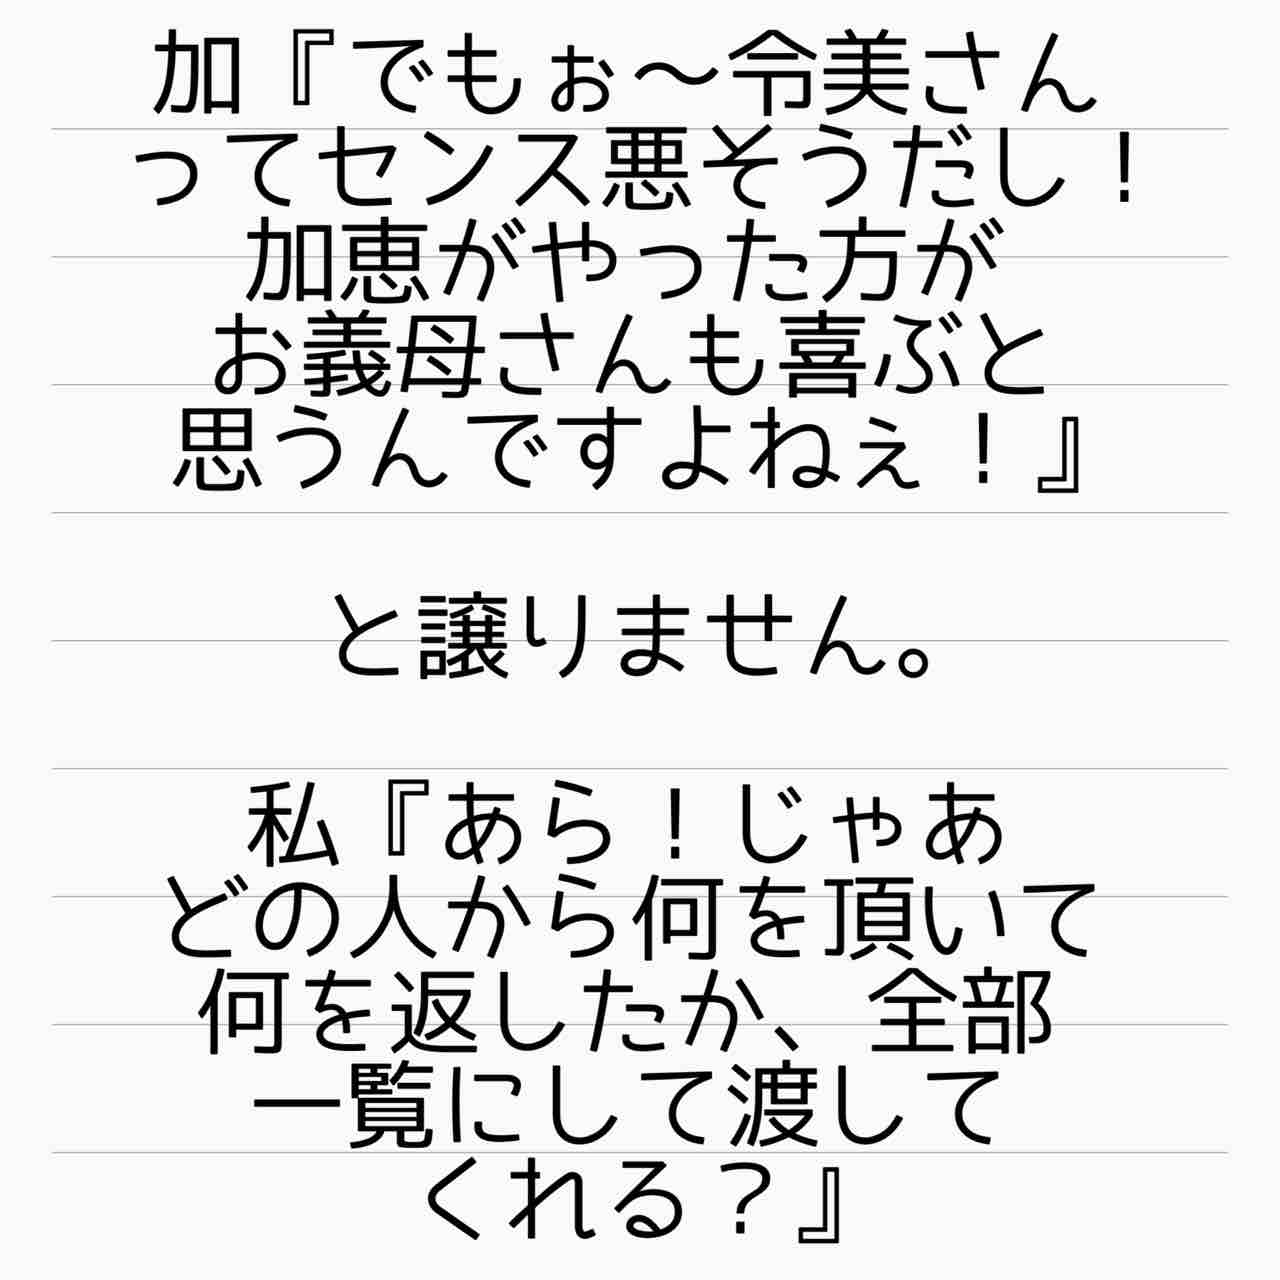 加『でもぉ〜令美さん
ってセンス悪そうだし！
加恵がやった方が
お義母さんも喜ぶと
思うんですよねぇ！』
と譲りません。
私『あら！じゃあ
どの人から何を頂いて
何を返したか、全部
一覧にして渡して
くれる？』